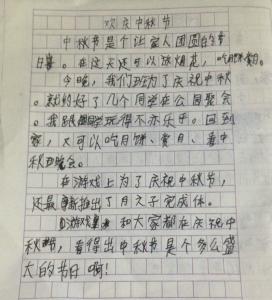 欢庆中秋节
中秋节是个让家人团圆的节
日。在这天还可以放烟花，吃月饼赏月。
今晚，我们班为了庆祝中秋
。就约好了几个同学在公园聚会
。我跟同学玩得不亦乐乎。回到
家，又可以吃月饼、赏月、看中
秋晚会。
在游戏上为了庆祝中秋节，
还最新推出了月之子完成体。
游戏里和大家都在庆祝中
秋节，看得出中秋节是个多么盛
大的节日啊！